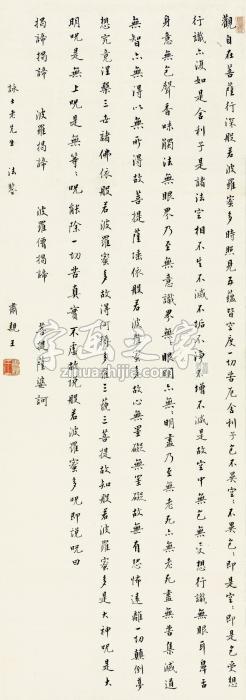 觀自在菩薩行深般若波羅蜜多時照見五蘊皆空度一切苦厄舍利子色不異空空不異色色即是空空即是色受想
行識亦復如是舍利子是諸法空相不生不滅不垢不淨不增不減是故空中無色無受想行識無眼耳鼻舌
身意無色聲香味觸法無眼界乃至無意識界無無明亦無無明盡乃至無老死亦無老死盡無苦集滅道
無智亦無得以無所得故菩提薩埵依般若波羅蜜多故心無罣礙無罣礙故無有恐怖遠離一切顛倒夢
想究竟涅槃三世諸佛依般若波羅蜜多故得阿耨多羅三藐三菩提故知般若波羅蜜多是大神咒是大
明咒是無上咒是無等等咒能除一切苦真實不虛故說般若波羅蜜多咒即說咒曰
揭諦揭諦 波羅揭諦 波羅僧揭諦 菩提薩婆訶
詠士老先生 法鑒 肅親王
字画之家